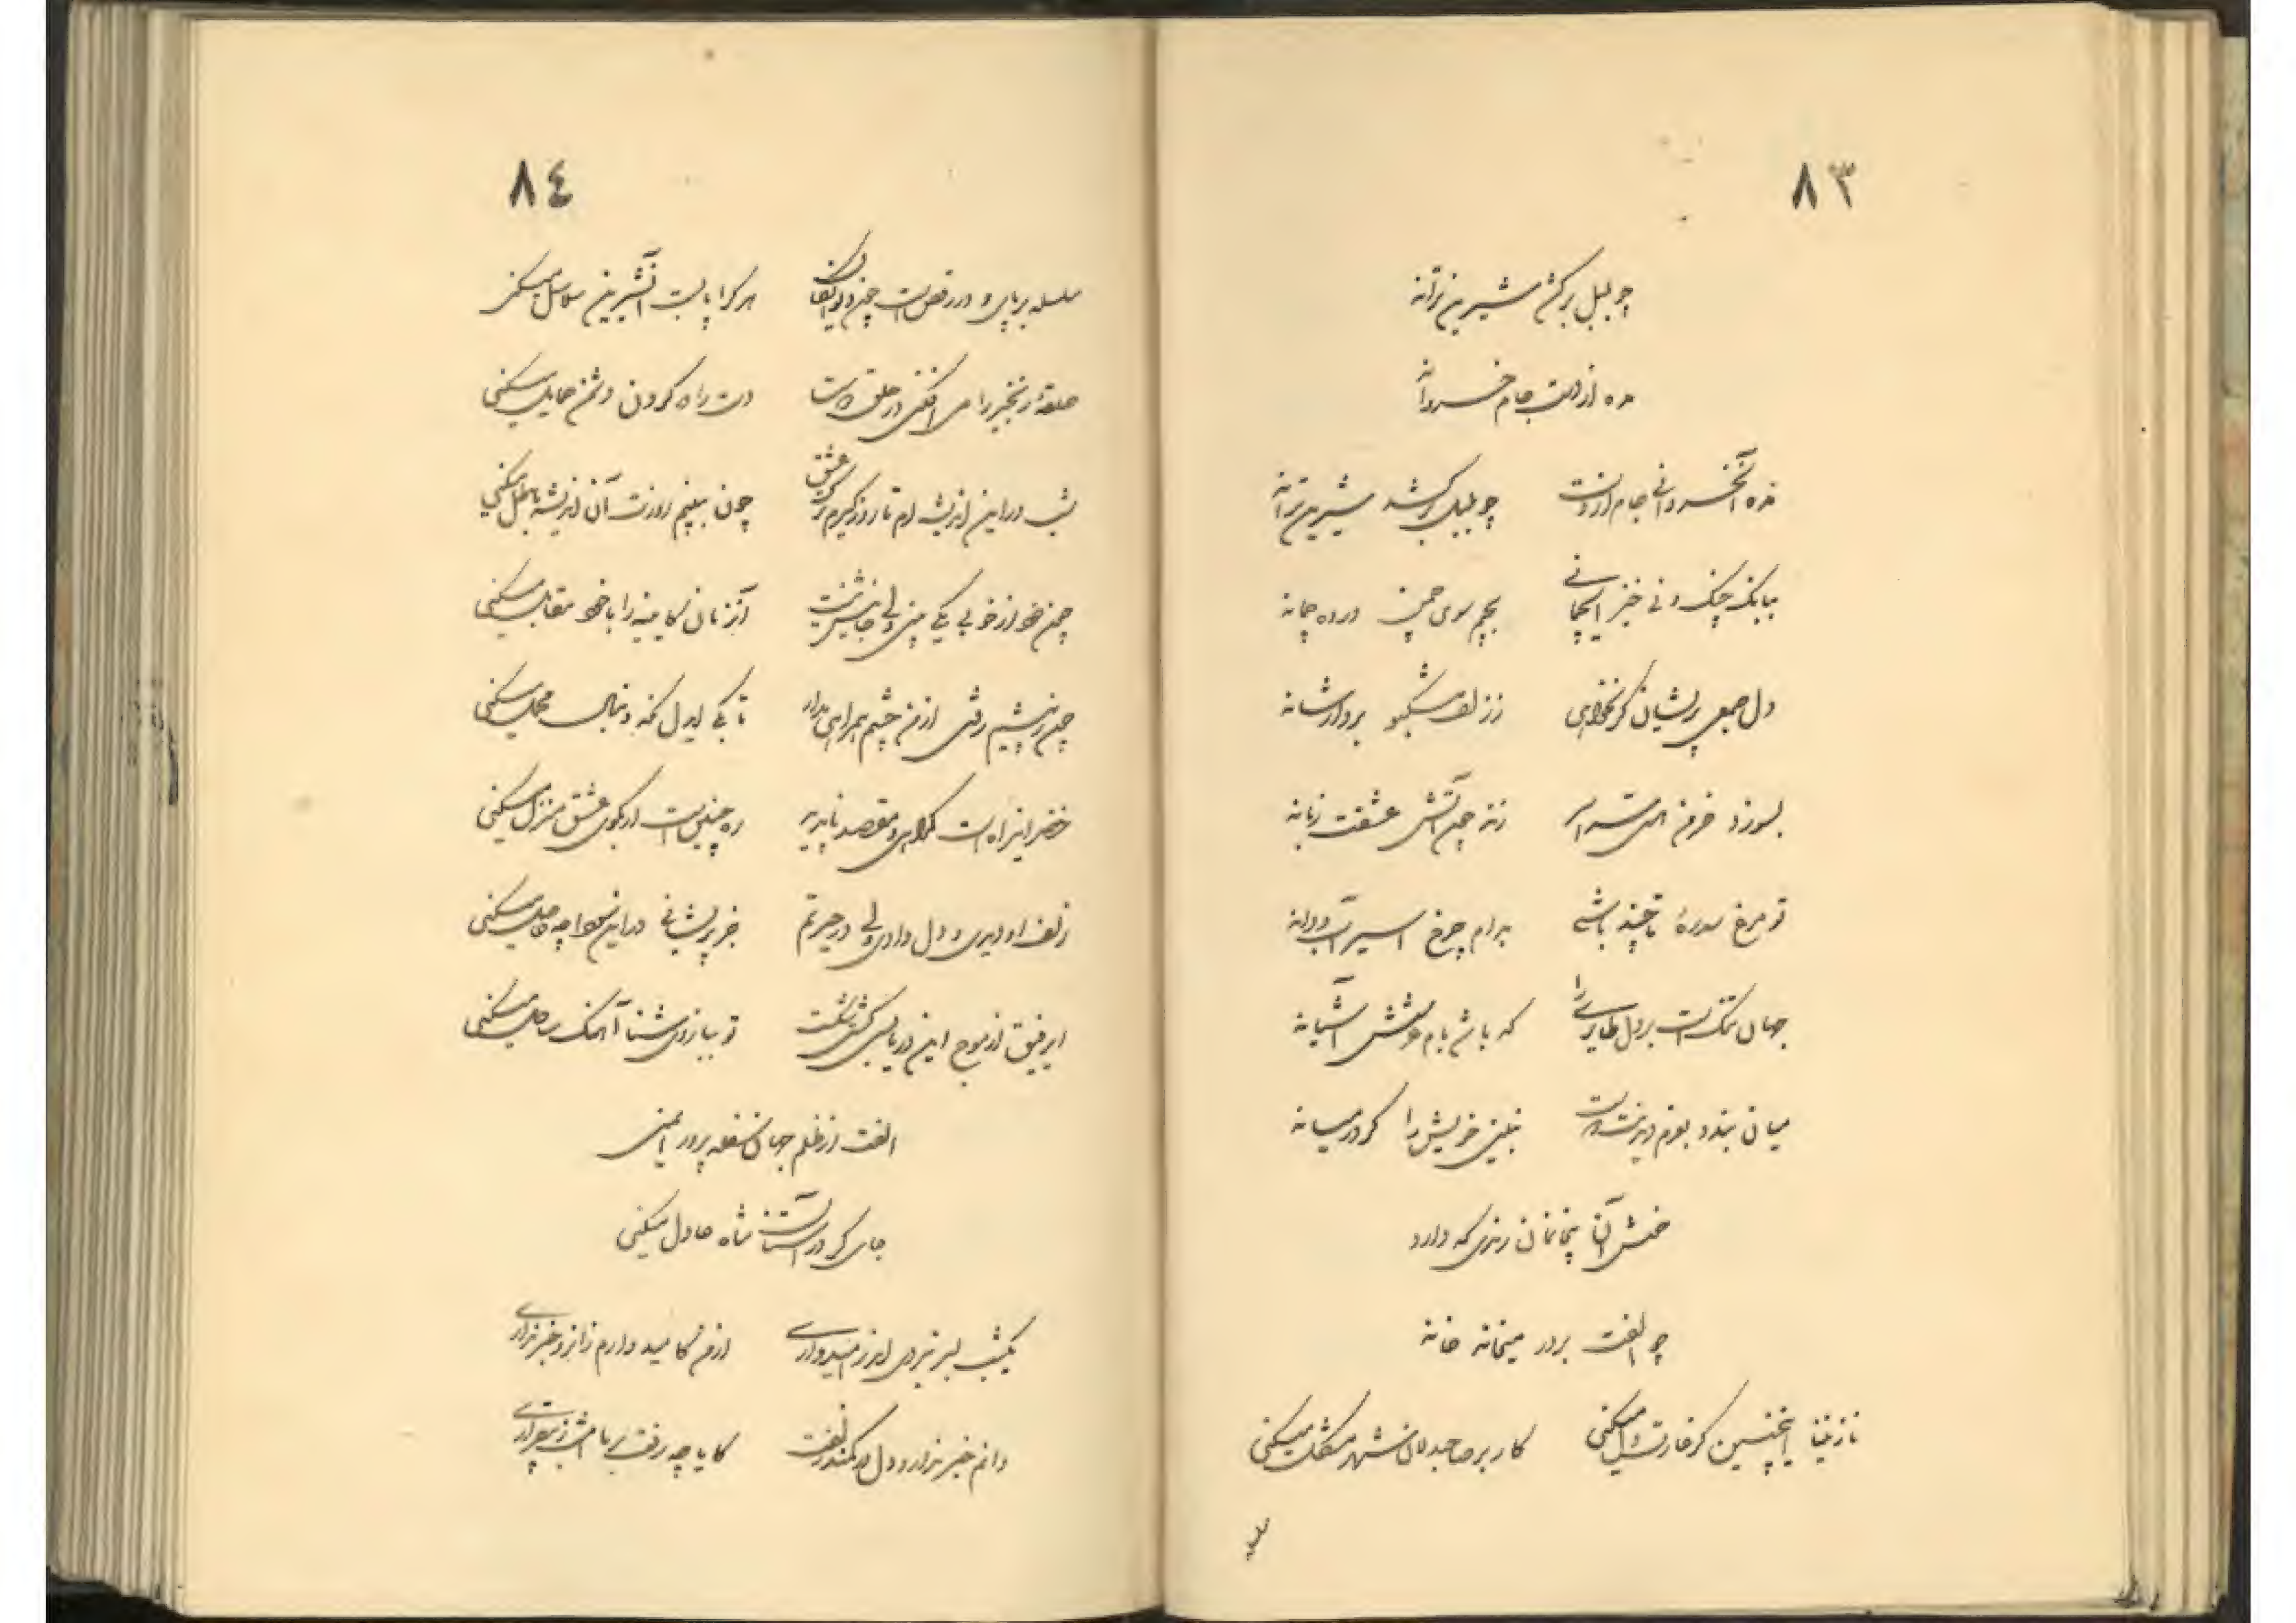 ۸۳
چو بلبل برکش شیرین ترانه
مده از دست جام خسروانه
مده آن خسروانی جام از دست
چو بلبل برکشد شیرین ترانه
ببانگ چنگ و نی خیز
بچم سوی چمن در ده چمانه
دل جمعی پریشان گر نخواهی
ز زلف مشکبو بردار شانه
بسوزد خرمن
زند چون آتش عشقت زبانه
تو مرغ سدره تا چند باشی
بدام چرخ اسیر آب و دانه
جهان تنگ است بر دل طایری را
که باشد بام عرشش آشیانه
میان بندد بعزم
نبیند خویش را گر در میانه
خوش آن بیخانمان رندی که دارد
چو الفت بر در میخانه خانه
نازنینا اینچنین گر غارت دل میکنی
کار بر صاحبدلان شهر مشکل میکنی
۸٤
سلسله بر پای و در رقص است چون دیوانگان
هر کرا پابست آن شیرین سلاسل میکنی
حلقهٔ زنجیر را می افکنی در حلق دوست
دست را در گردن دشمن حمایل میکنی
شب در این اندیشه ام تا روز گیرم ترک عشق
چون ببینم روزت آن اندیشه باطل میکنی
چون خود از خوبی یکی بینی ولی جانیش نیست
آن زمان کایینه را با خود مقابل میکنی
چون ز پیشم رفتی از من چشم همراهی مدار
تا بکی ایدل کنه دنبال محمل میکنی
خضر این راه است گمراه و مقصد ناپدید
ره چنین است ار بکوی عشق منزل میکنی
زلف او دیدی و دل دادی ولی در حیرتم
جز پریشانی در این سودا چه حاصل میکنی
ای رفیق از موج این دریا بسی کشتی شکست
تو ببازوی شنا آهنگ ساحل میکنی
الفت از ظلم جهان سفله پرور ایمنی
جای گر در آستان شاه عادل میکنی
یکشب بسر نبردی از امیدواری
از من کامید دارم زانرو خبر نداری
دانم خبر ندارد دل در کمند زلفت
کایا چه رفت بر ما امشب ز بیقراری